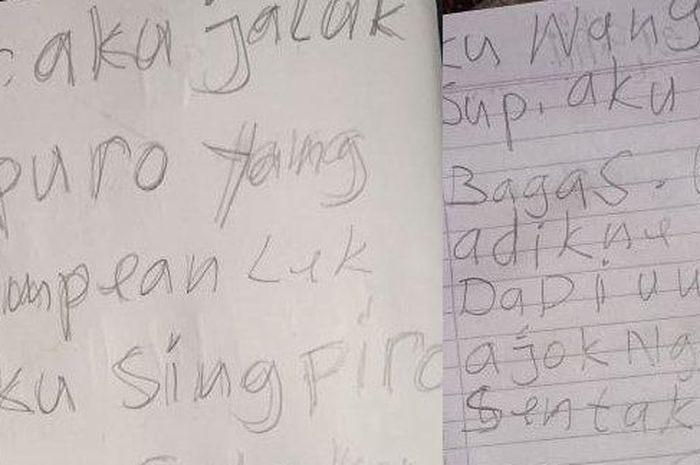 aku jaluk
puro Yaing
ompean Lek
ku Sing Piro
ku Wang
Sup. aku
Bagas.
adikne
DaDi uu
ajok Ng
Sentak